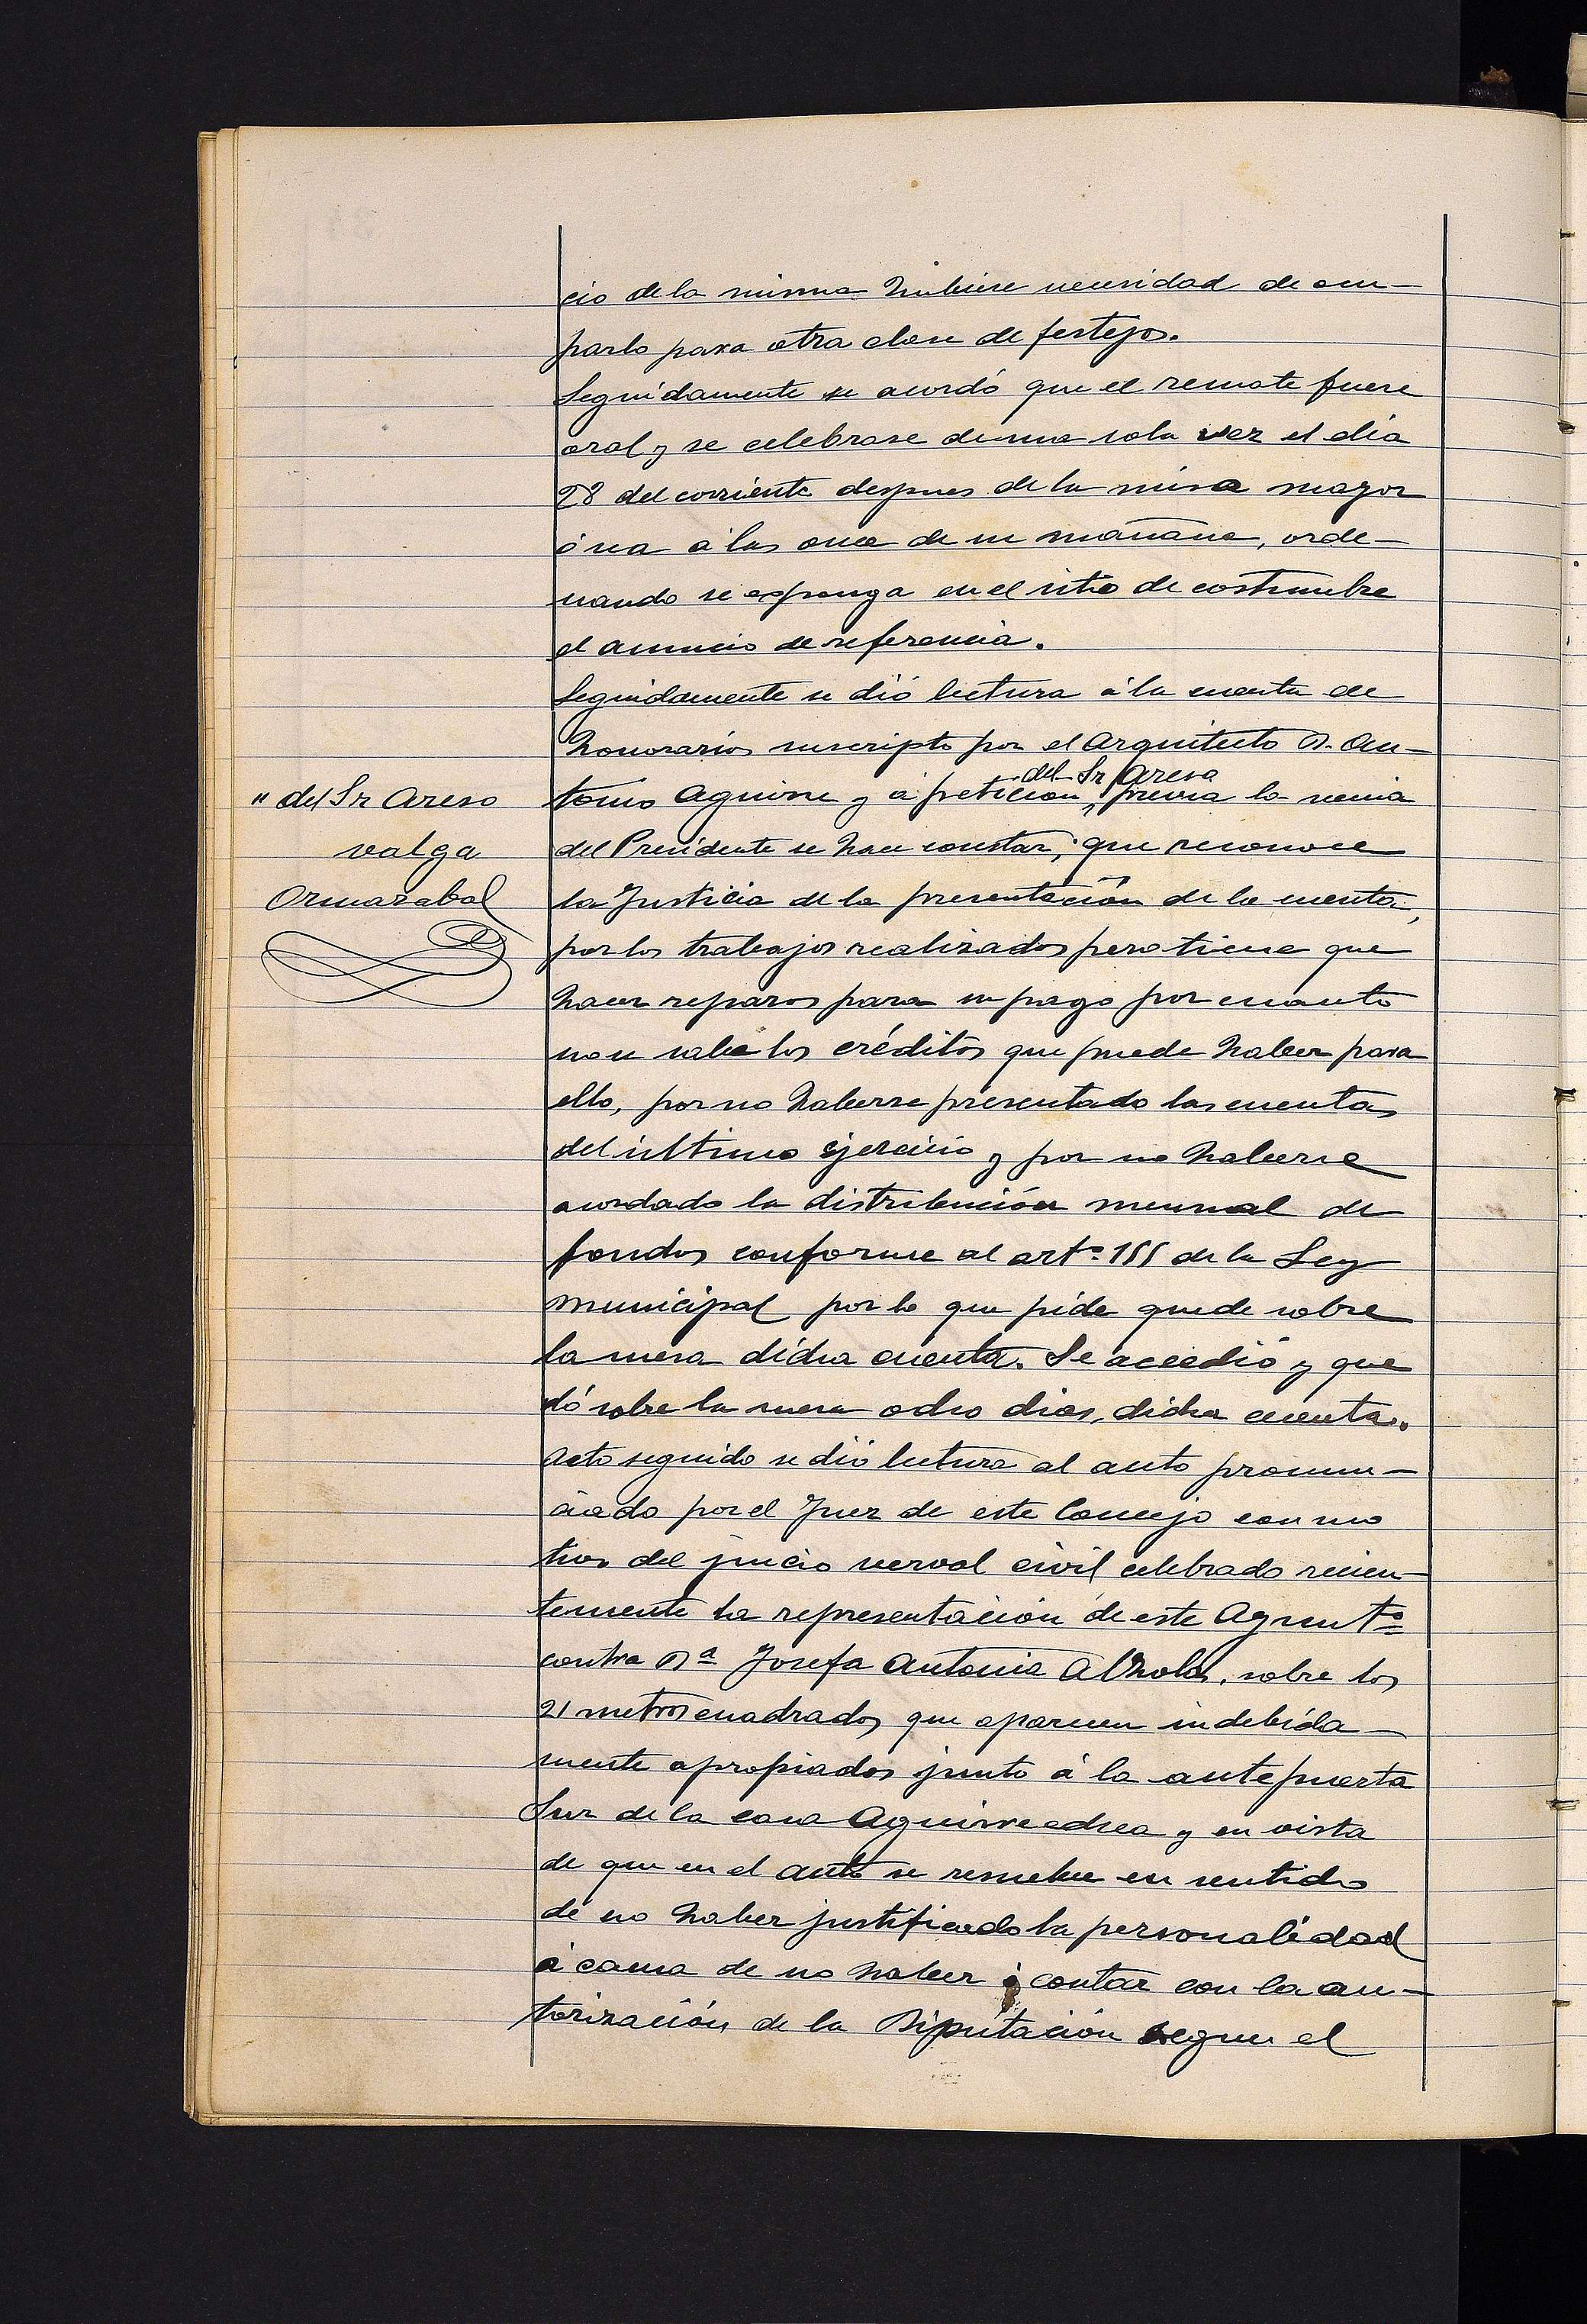 cio de la misma hubiese necesidad de ocu-
parlo para otra clase de festejos.
Seguidamente se acordó que el remate fuere
oral y se celebrase de una sola vez el dia
28 del corriente despues de la misa mayor
ó sea á las once de su mañana, orde-
nando se exponga en el sitio de costumbre
el anuncio de referencia.
Seguidamente se dió lectura á la cuenta de
honorarios suscripto por el Arquitecto D. An-
del Sr Areso
" del Sr Areso
tonio Aguirre y á peticion, previa la venia
valga
del Presidente se hace constar; que reconoce
Ormazabal
la Justicia de la presentación de la cuenta,
por los trabajos realizados pero tiene que
hacer reparos para su pago por cuanto
no se sabe los créditos que puede haber para
ello, por no haberse presentado las cuentas
del último ejercicio y por no haberse
acordado la distribución mensual de
fondos conforme al artº 155 de la Ley
municipal por lo que pide quede sobre
la mesa dicha cuenta. Se accedió y que
dó sobre la mesa ocho dias, dicha cuenta.
Acto seguido se dió lectura al auto pronun-
ciado por el Juez de este Concejo con mo
tivo del juicio verval civil celebrado recien-
temente la representación de este Ayuntº
contra Dª Josefa Antonia Alzola, sobre los
21 metros cuadrados que aparecen indebida-
mente apropiados junto á la antepuerta
Sur de la casa Aguirre echea y en vista
de que en el auto se resuelve en sentido
de no haber justificado la personalidad
á causa de no haber ó contar con la au-
torización de la Diputación segun el